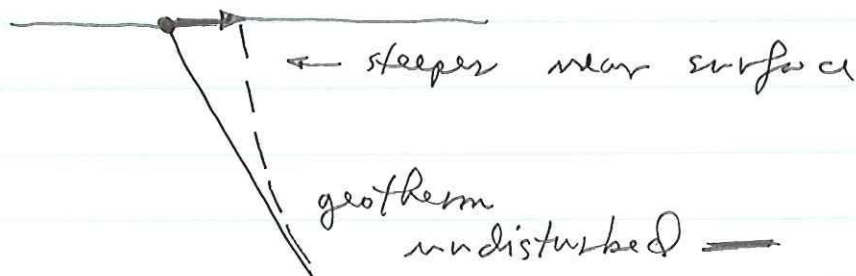 ← steeper near surface
geotherm
undisturbed —